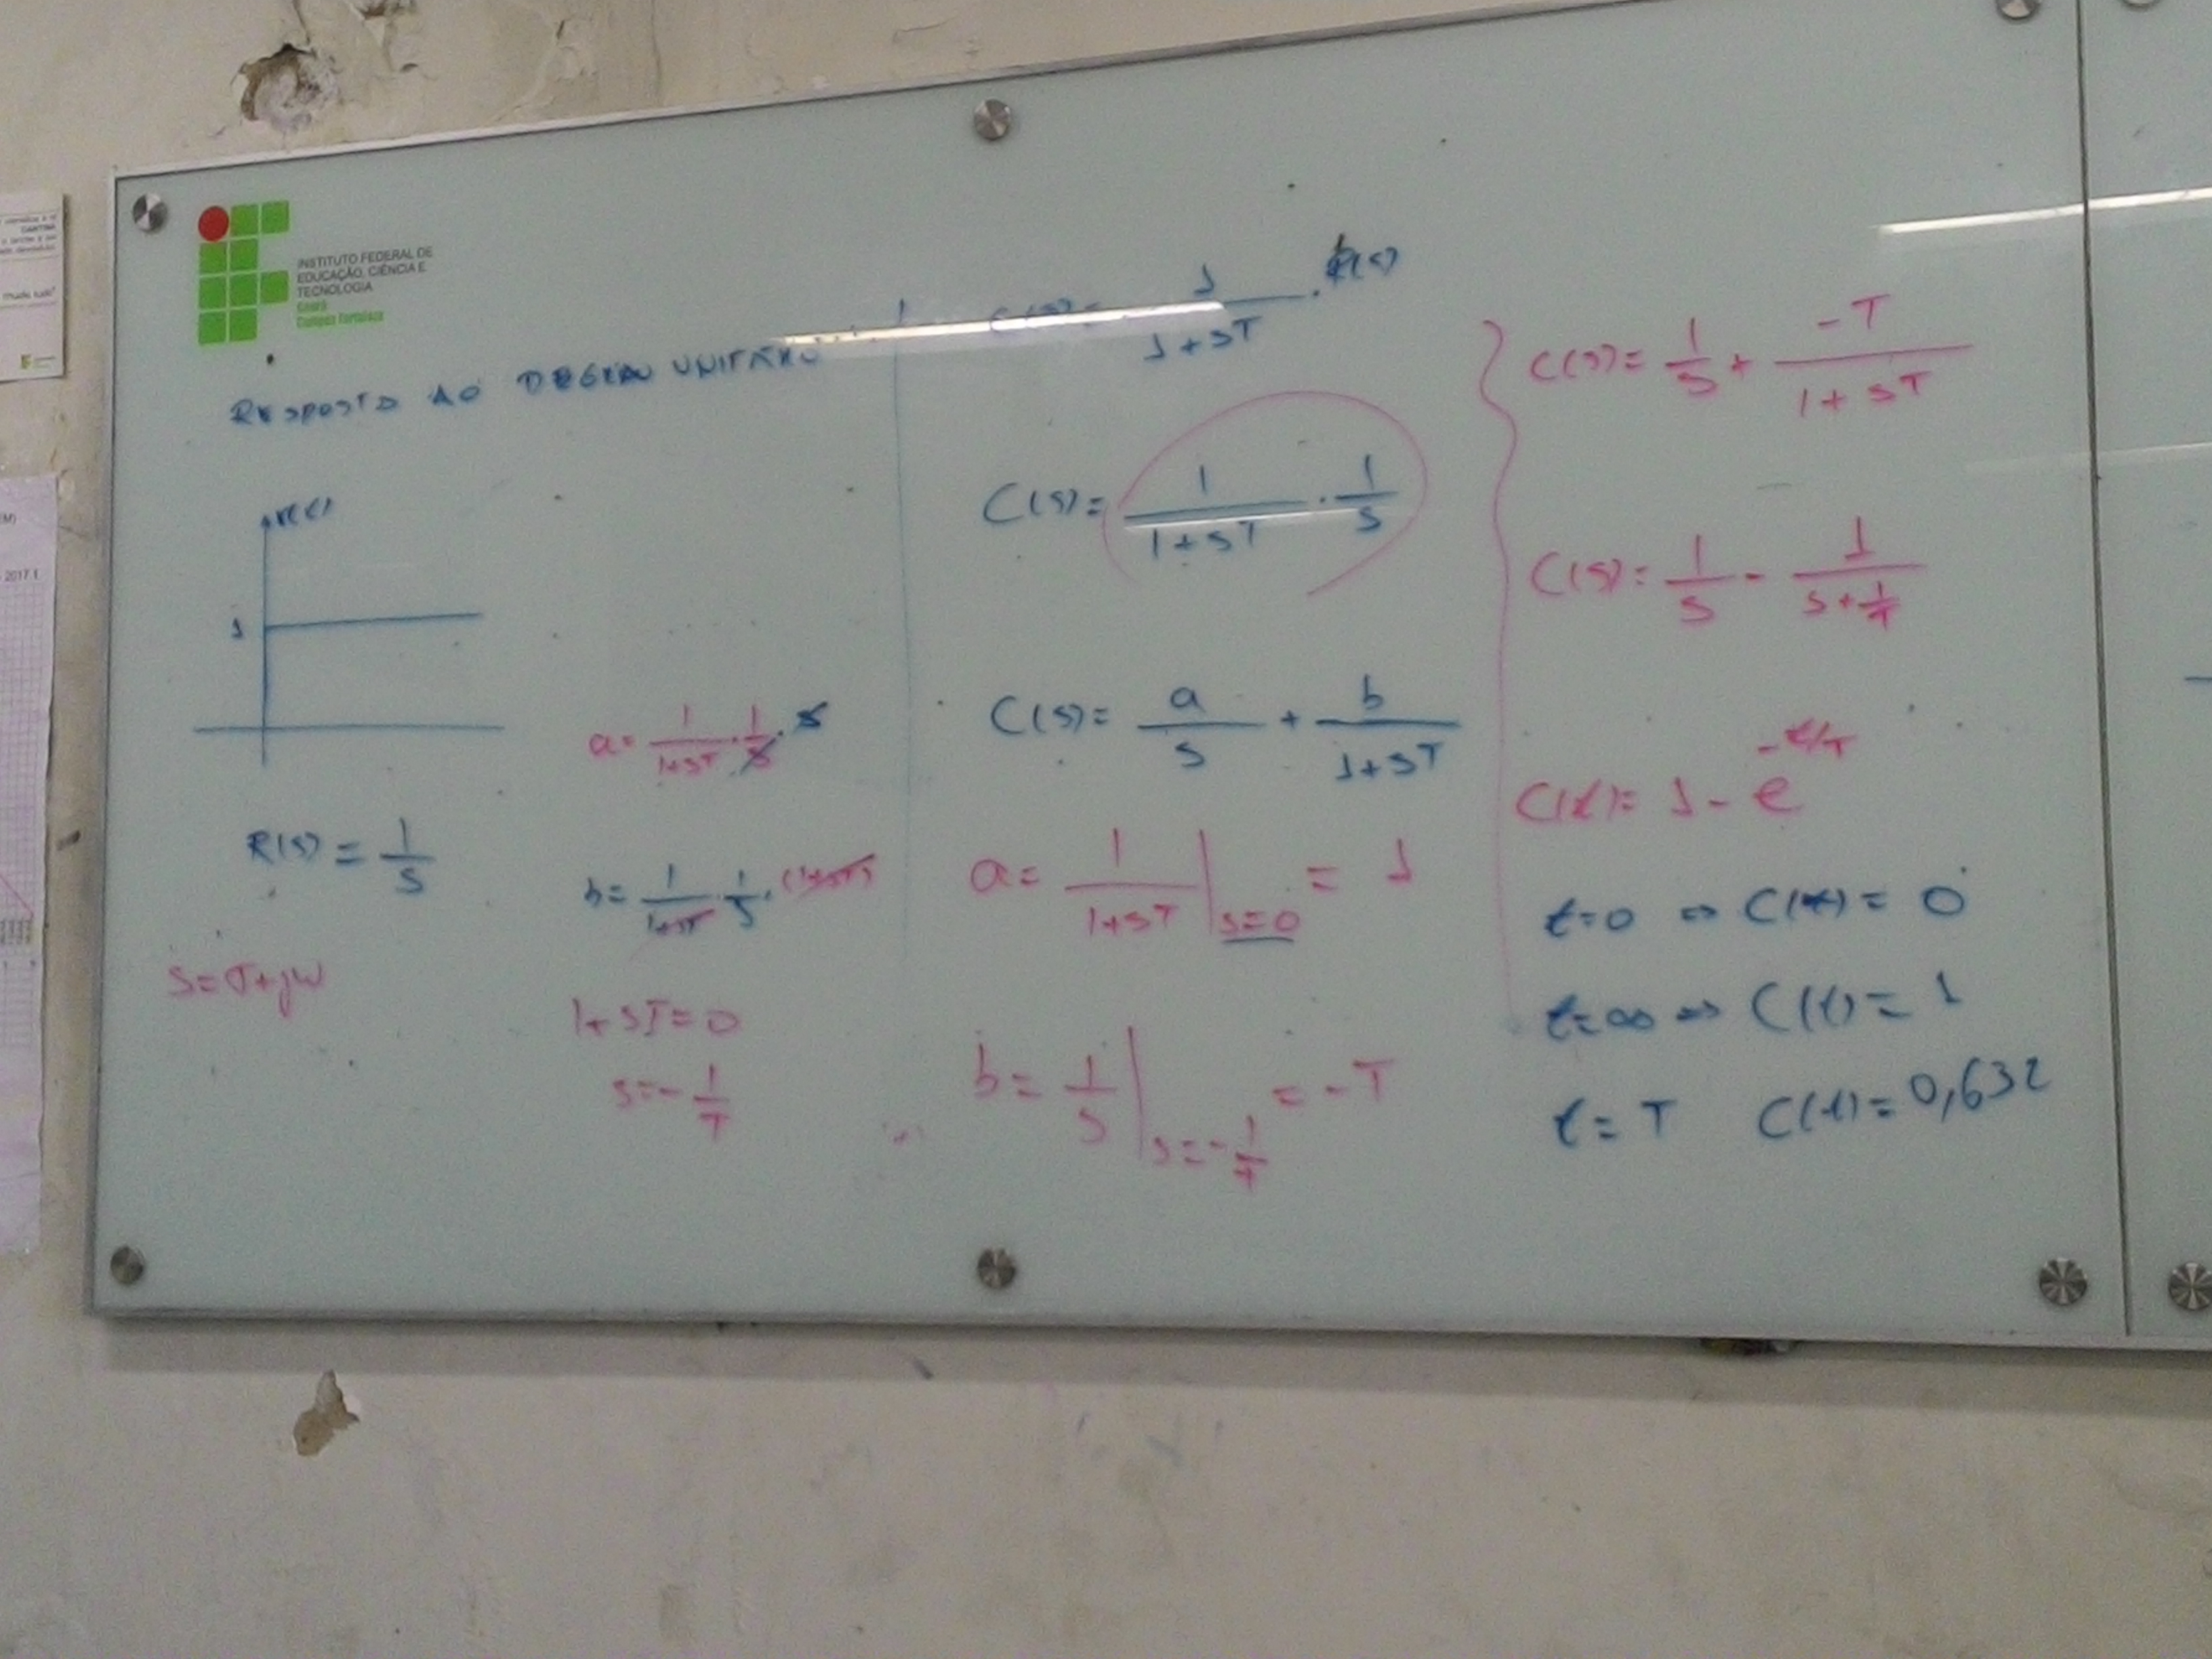 INSTITUTO FEDERAL DE
EDUCAÇÃO, CIÊNCIA E
TECNOLOGIA
Ceará
Campus Fortaleza
RESPOSTA AO DEGRAU UNITÁRIO
r(t)
1
R(s) = 1/s
s=σ+jω
a= 1/(1+sT) · 1/s · s
b= 1/(1+sT) · 1/s · (1+sT)
1+sT=0
s=-1/T
C(s)= 1/(1+sT) · R(s)
C(s)= 1/(1+sT) · 1/s
C(s)= a/s + b/(1+sT)
a= 1/(1+sT) |s=0 = 1
b= 1/s |s=-1/T = -T
C(s)= 1/s + -T/(1+sT)
C(s)= 1/s - 1/(s+1/T)
C(t)= 1 - e^(-t/T)
t=0 ⇒ C(t)= 0
t=∞ ⇒ C(t)= 1
t=T C(t)=0,632